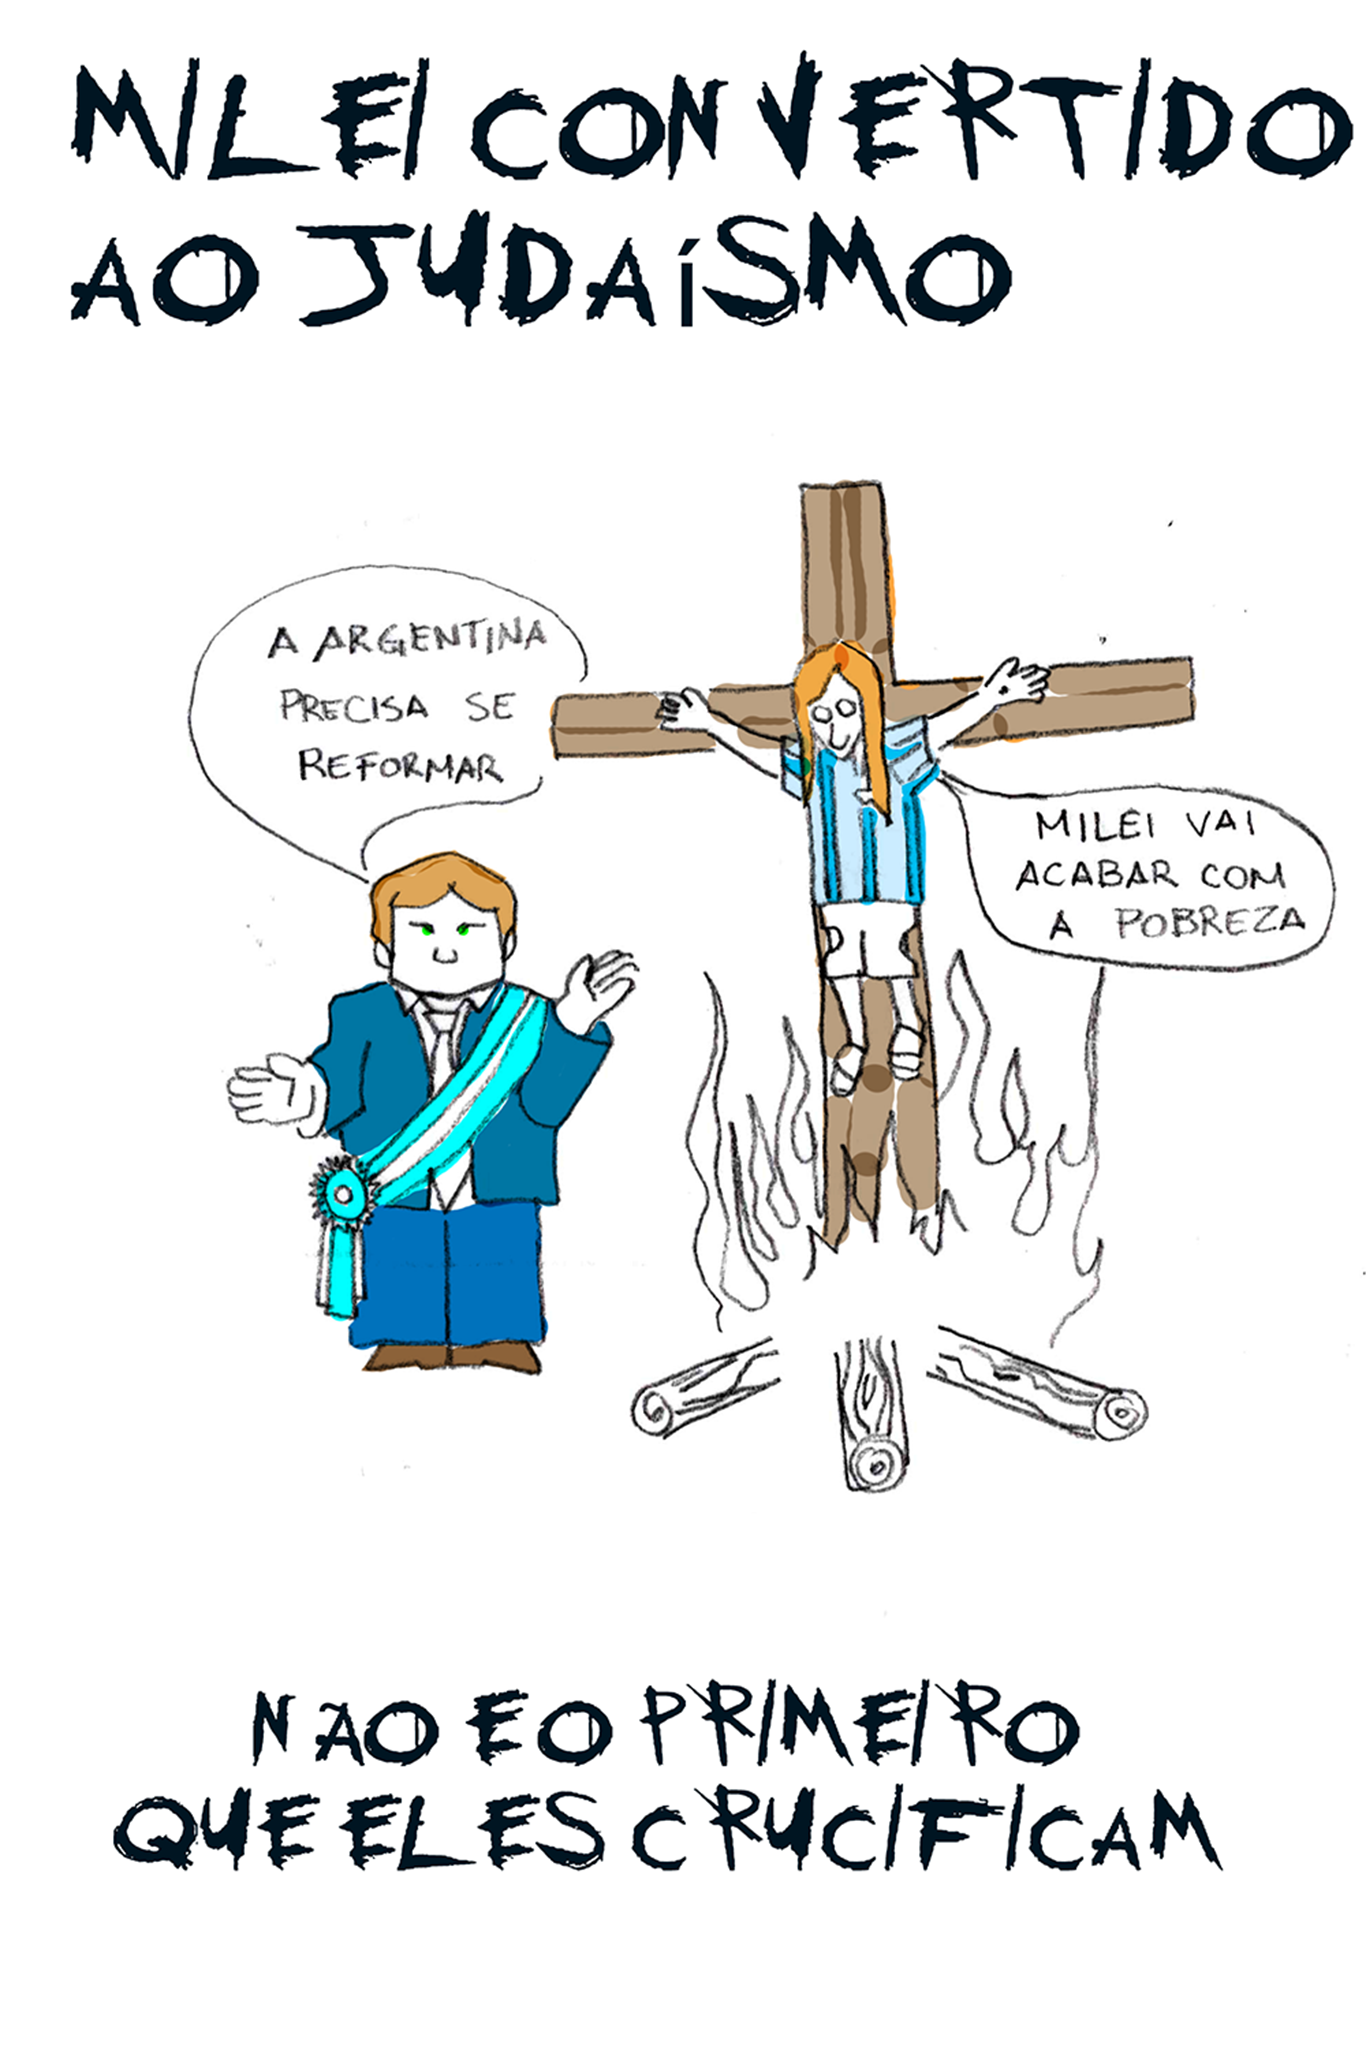 MILEI CONVERTIDO
AO JUDAÍSMO
A ARGENTINA
PRECISA SE
REFORMAR
MILEI VAI
ACABAR COM
A POBREZA
NÃO E O PRIMEIRO
QUE ELES CRUCIFICAM